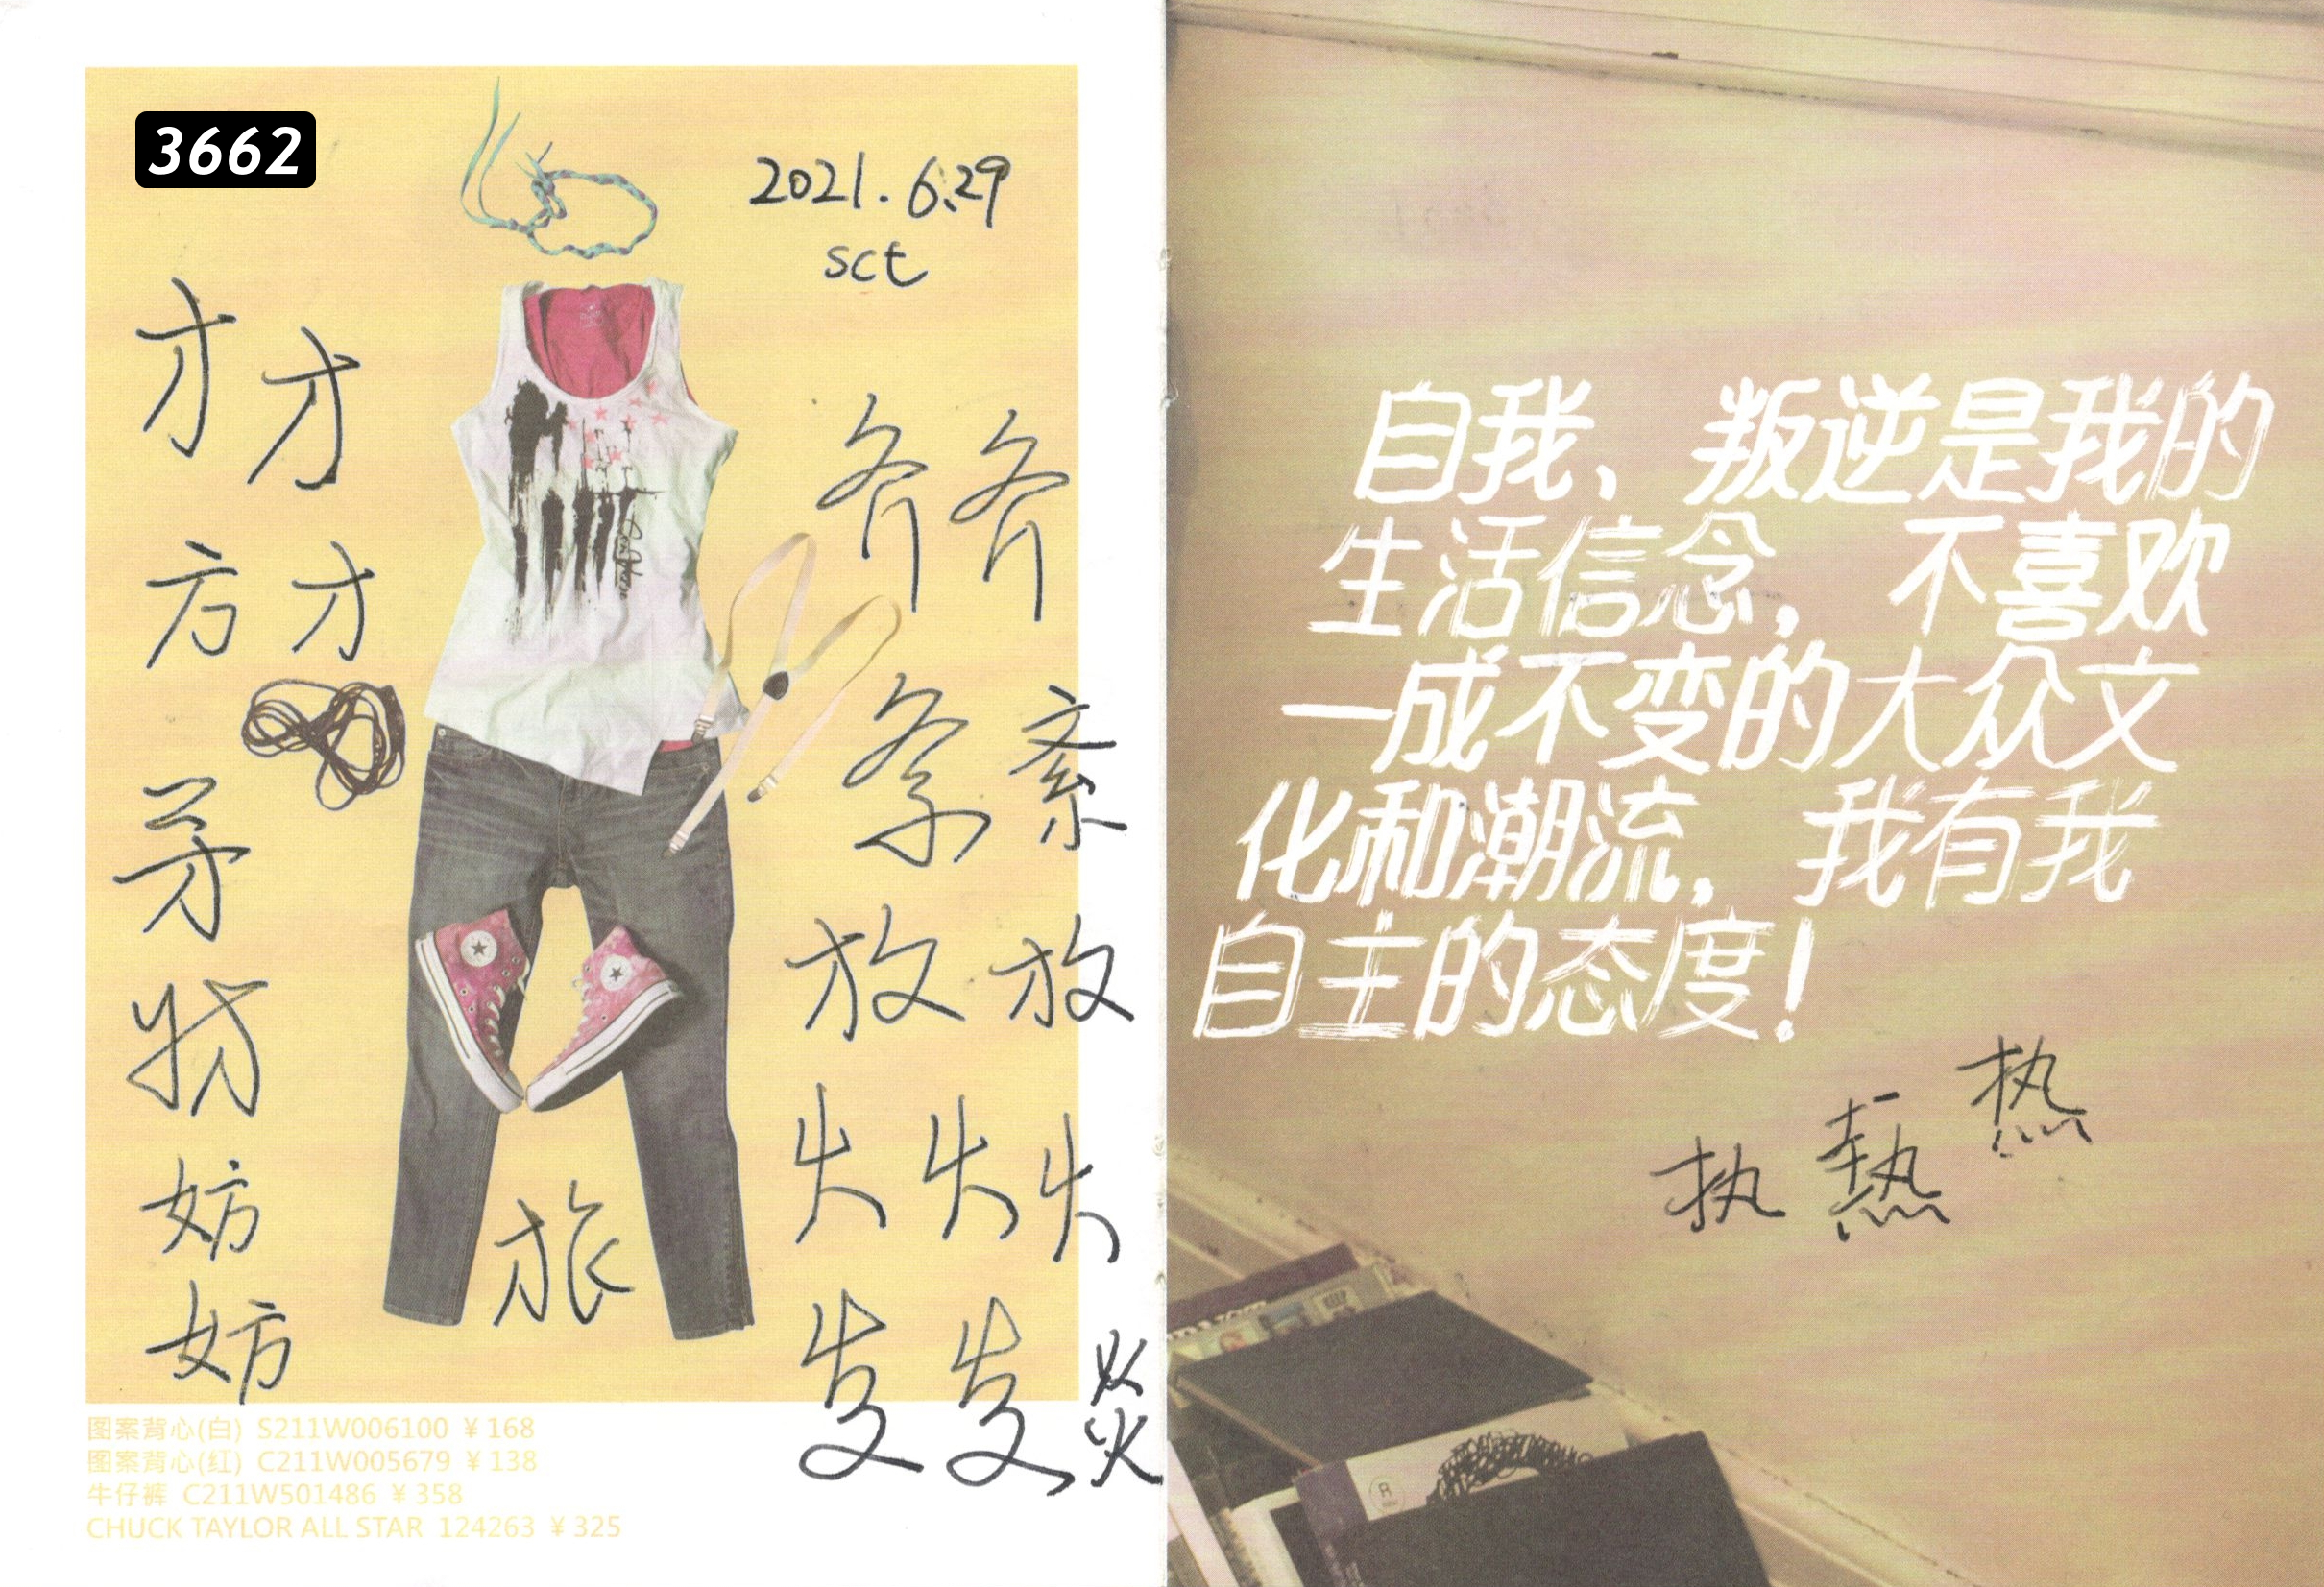 3662
2021.6.29
sct
才 才
方 才
放 放
妨
妨
旅
图案背心(白) S211W006100 ¥168
图案背心(红) C211W005679 ¥138
牛仔裤 C211W501486 ¥358
CHUCK TAYLOR ALL STAR 124263 ¥325
自我、叛逆是我的
生活信念，不喜欢
一成不变的大众文
化和潮流，我有我
自主的态度！
热
执